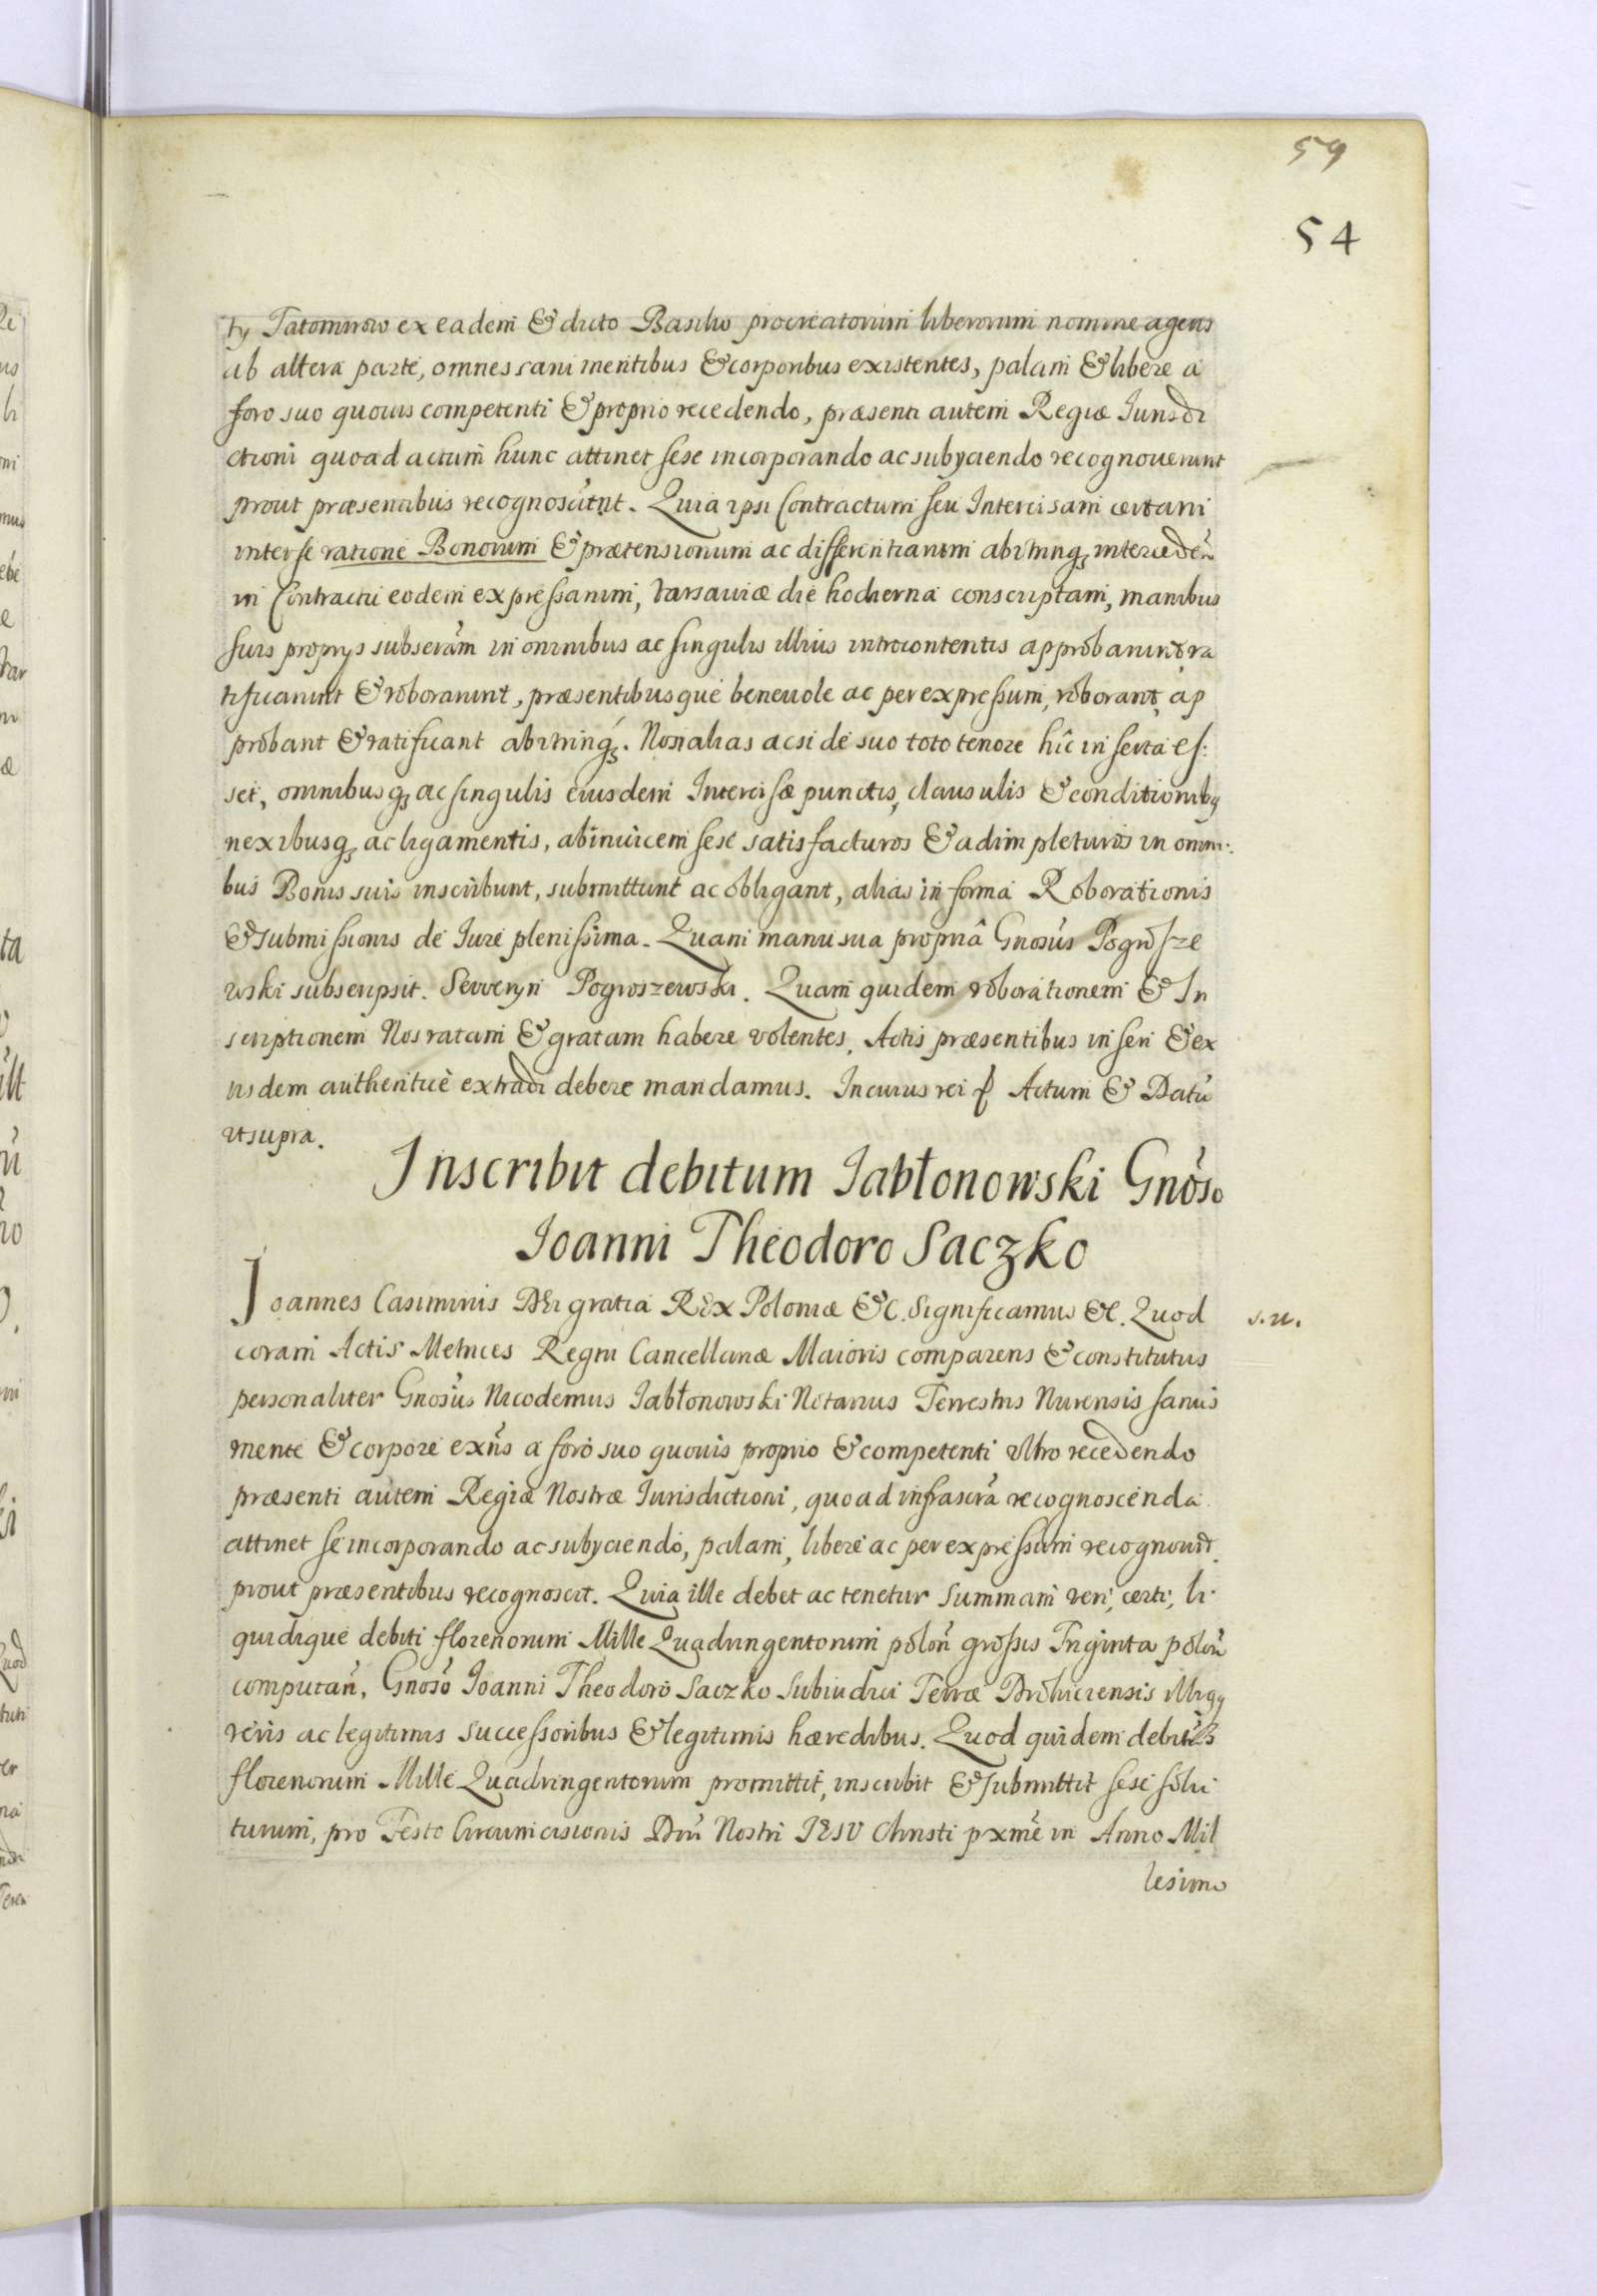 59
54
ty Tatomirow ex eadem & dicto Basilio procreatorum liberorum nomine agens
ab altera parte, omnes sani mentibus & corporibus existentes, palam & libere a
foro suo quouis competenti & proprio recedendo, præsenti autem Regiæ Iurisdi
ctioni quoad actum hunc attinet sese incorporando ac subyciendo recognouerunt
prout præsentibus recognoscunt. Quia ipsi Contractum seu Intercisam certam
inter se ratione Bonorum & prætensionum ac differentiarum abvtrinq₃ interceden̄
in Contractu eodem expressarum, Varsauiæ die hodierna conscriptam, manibus
suis proprys subscram̄ in omnibus ac singulis illius introcontentis approbarunt, ra
tificarunt & roborarunt, præsentibusque beneuole ac per expressum, roborant, ap
probant & ratificant abvtrinq₃. Non alias ac si de suo toto tenore hîc inserta es:
set, omnibusq₃ ac singulis eiusdem Intercisæ punctis, clausulis & conditionibꝫ
nexibusq₃ ac ligamentis, abinuicem sese satisfacturos & adimpleturos in omni:
bus Bonis suis inscribunt, submittunt ac obligant, alias in forma Roborationis
& submissionis de Iure plenissima. Quam manu sua propriâ Gnosus Pogrosze
wski subscripsit. Seweryn Pogroszewski. Quam quidem roborationem & In
scriptionem Nos ratam & gratam habere volentes, Actis præsentibus inseri & ex
ijsdem authenticè extradi debere mandamus. In cuius rei ꝭ Actum & Datū
vt supra.
Inscribit debitum Jabłonowski Gnoso
Joanni Theodoro Saczko
Joannes Casimirus DEi gratia REx Poloniæ &c. Significamus &c. Quod
s. n.
coram Actis Metrices Regni Cancellariæ Maioris comparens & constitutus
personaliter Gnosus Nicodemus Jabłonowski Notarius Terrestris Nurensis sanus
mente & corpore exn̄s a foro suo quouis proprio & competenti vltro recedendo
præsenti autem Regiæ Nostræ Iurisdictioni, quoad infrascra recognoscenda
attinet se incorporando ac subyciendo, palam, libere ac per expressum recognouit.
prout præsentibus recognoscit. Quia ille debet ac tenetur summam veri, certi, li
quidique debiti florenorum Mille Quadringentorum polon̄ grossis Triginta polon̄
computan̄, Gnoso Joanni Theodoro Saczko Subiudici Terræ Drohiciensis illiqꝫ
veris ac legitimis successoribus & legitimis hæredibus. Quod quidem debitū
florenorum Mille Quadringentorum promittit, inscribit & submittit sese solu
turum, pro Festo Circumcisionis Dn̄i Nostri IESV Christi pxmē in Anno Mil
lesimo